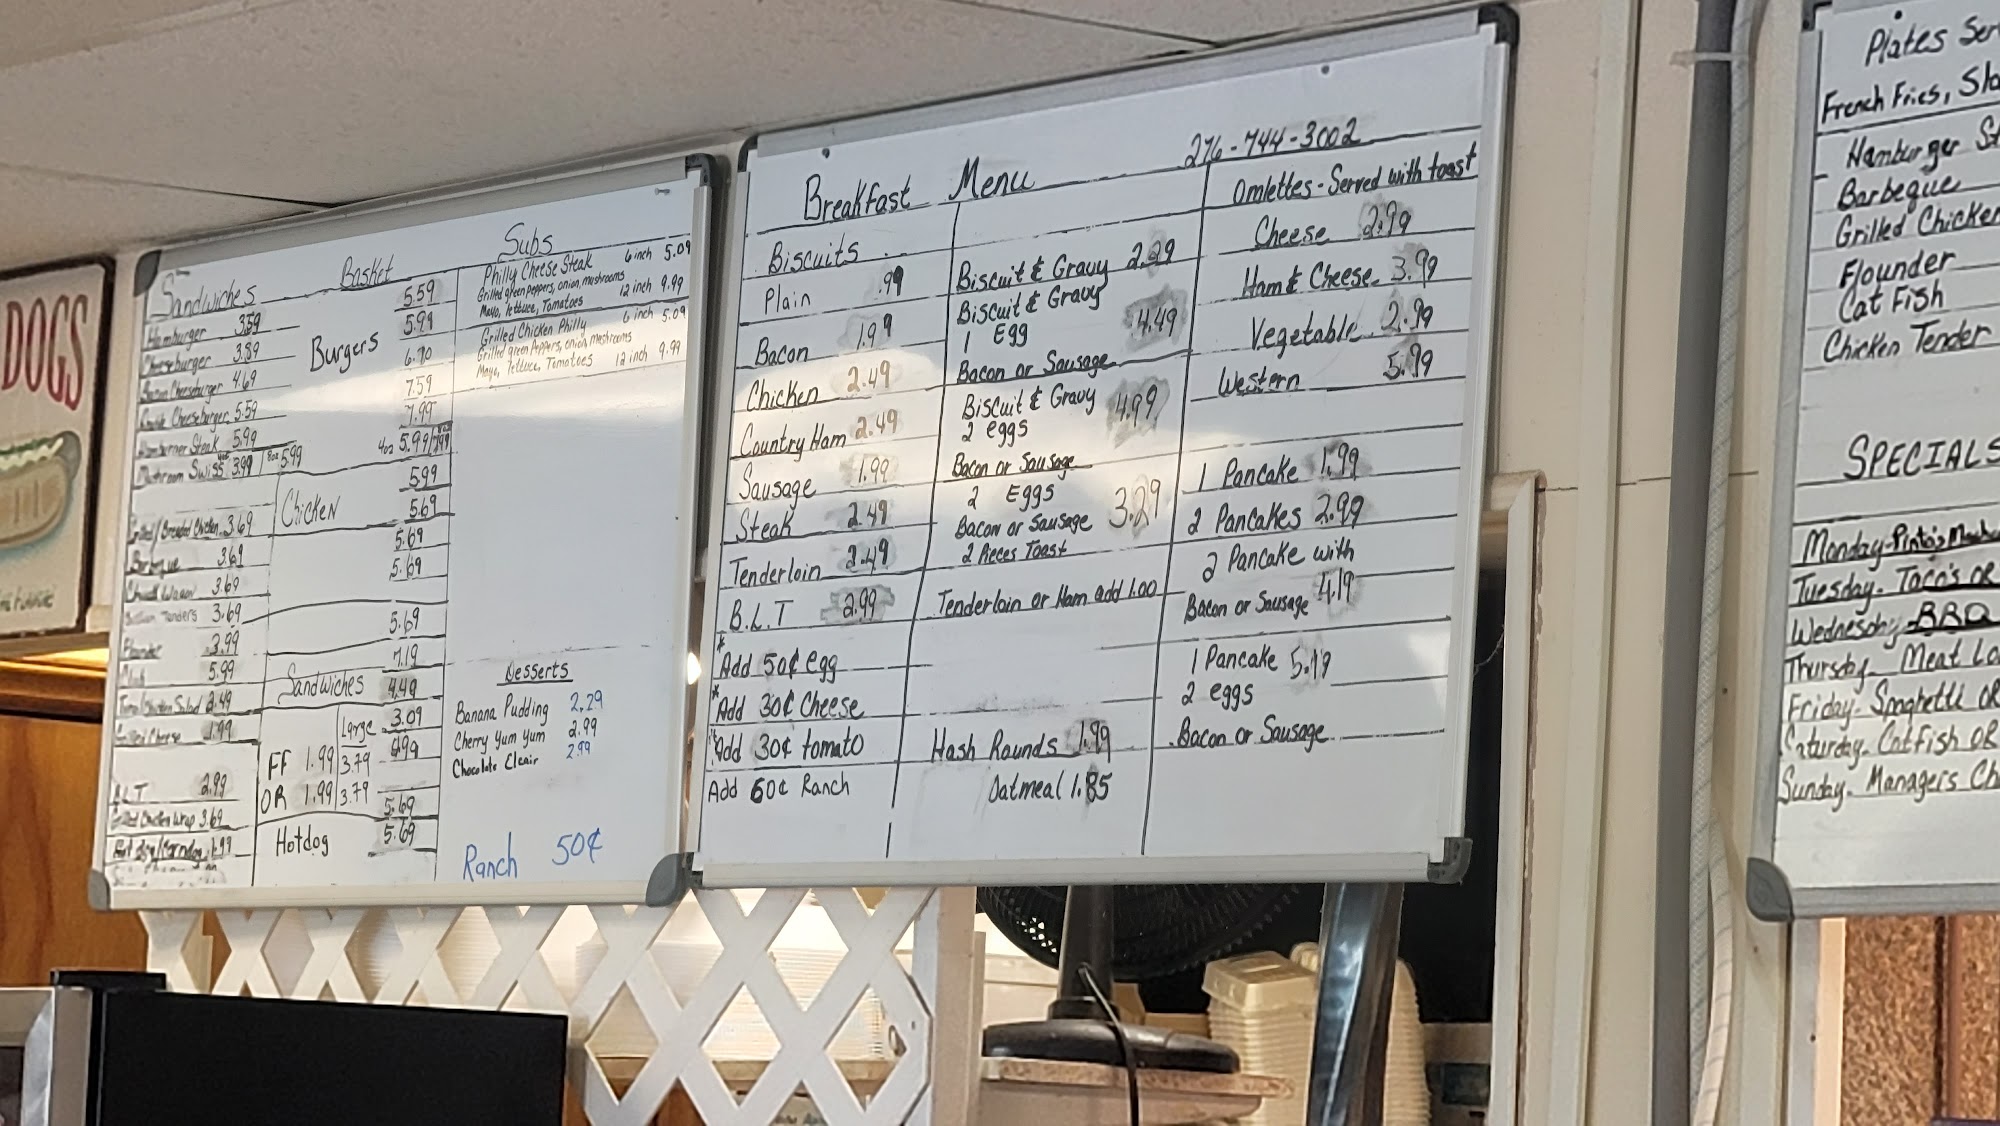 DOGS
Sandwiches
Hamburger 3.59
Cheeseburger 3.89
Bacon Cheeseburger 4.69
Cheeseburger 5.59
Hamburger Steak 5.99
Mushroom Swiss 3.99 / 5.99
Grilled/Breaded Chicken 3.69
Barbeque 3.69
3.69
Tenders 3.69
Flounder 3.99
Club 5.99
Salad 2.49
Grilled Cheese 1.99
B.L.T 2.99
Grilled Chicken Wrap 3.69
Hot dog/Corndog 1.99
Basket
Burgers
5.59
5.99
6.90
7.59
7.99
4oz 5.99/7.99
Chicken
5.99
5.69
5.69
5.69
5.69
7.19
Sandwiches 4.49
Large 3.09
FF 1.99/3.79 6.99
OR 1.99/3.79
5.69
Hotdog 5.69
Subs
Philly Cheese Steak 6 inch 5.09
Grilled green peppers, onion, mushrooms 12 inch 9.99
Mayo, lettuce, Tomatoes
Grilled Chicken Philly 6 inch 5.09
Grilled green Peppers, onion, mushrooms
Mayo, lettuce, Tomatoes 12 inch 9.99
Desserts
Banana Pudding 2.29
Cherry Yum Yum 2.99
Chocolate Eclair 2.99
Ranch 50¢
Breakfast Menu 276-744-3002
Biscuits
Plain .99
Bacon 1.99
Chicken 2.49
Country Ham 2.49
Sausage 1.99
Steak 2.49
Tenderloin 2.49
B.L.T 2.99
* Add 50¢ egg
* Add 30¢ Cheese
* Add 30¢ tomato
Add 60¢ Ranch
Biscuit & Gravy 2.29
Biscuit & Gravy
1 Egg 4.49
Bacon or Sausage
Biscuit & Gravy 4.99
2 eggs
Bacon or Sausage
2 Eggs
Bacon or Sausage 3.29
2 Pieces Toast
Tenderloin or Ham add 1.00
Hash Rounds 1.99
Oatmeal 1.85
Omlettes - Served with toast
Cheese 2.99
Ham & Cheese 3.99
Vegetable 2.99
Western 5.99
1 Pancake 1.99
2 Pancakes 2.99
2 Pancake with
Bacon or Sausage 4.19
1 Pancake 5.19
2 eggs
Bacon or Sausage
Plates Ser
French Fries, Sla
Hamburger St
Barbeque
Grilled Chicken
Flounder
Cat Fish
Chicken Tender
SPECIALS
Monday-Pinto's
Tuesday- Taco's OR
Wednesday- BBQ
Thursday- Meat Lo
Friday- Spaghetti OR
Saturday- Catfish OR
Sunday- Managers Ch